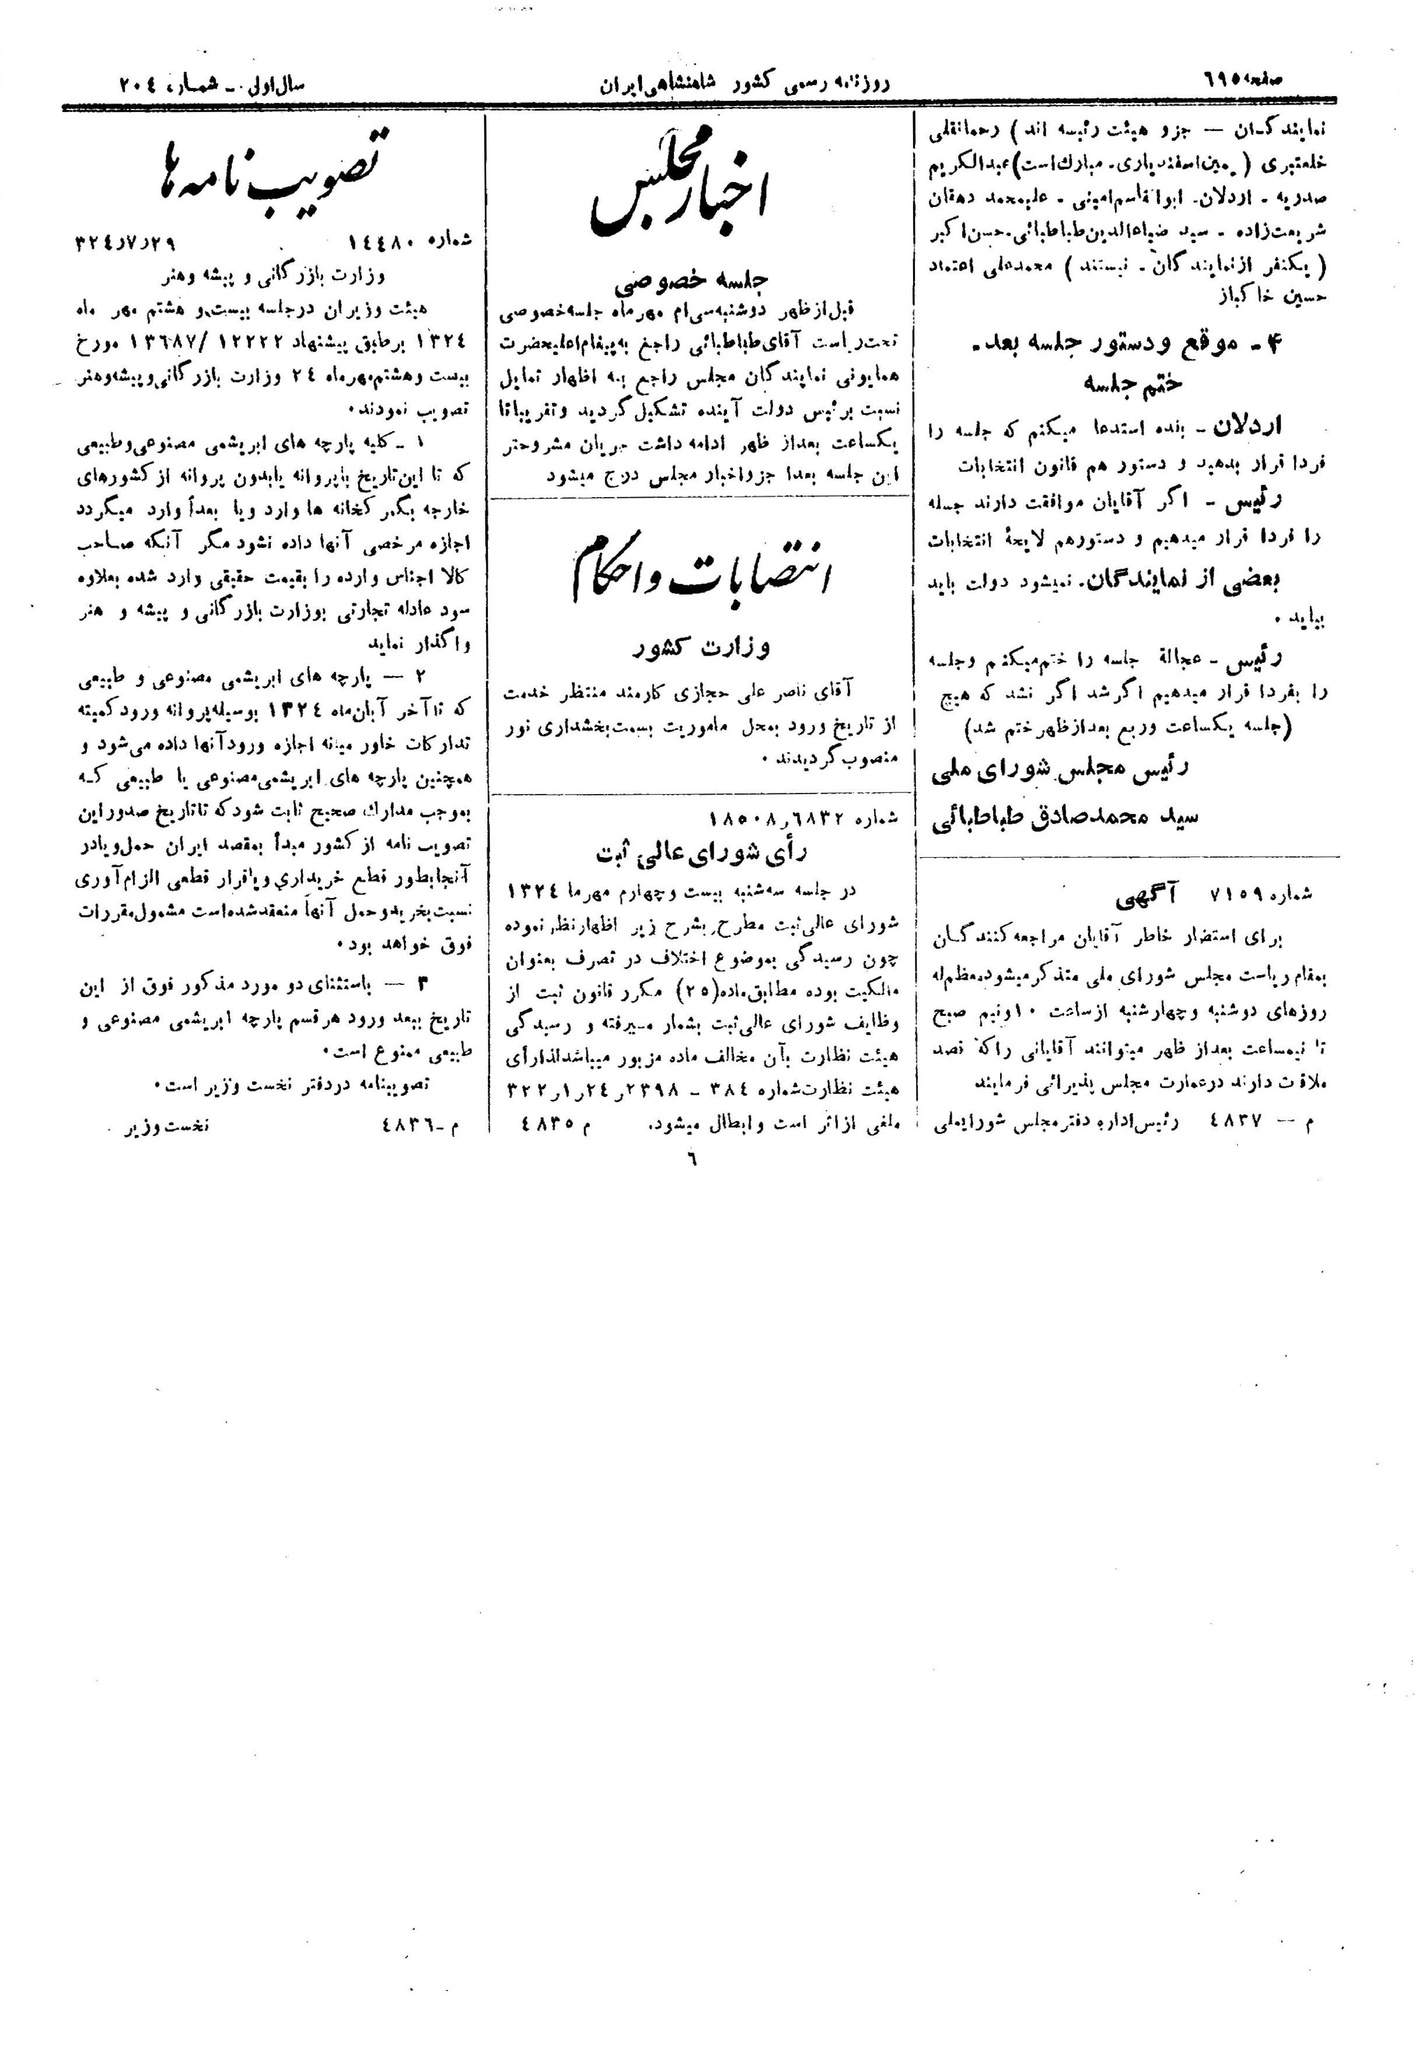 صفحه ٦٩٥
روزنامه رسمی کشور شاهنشاهی ایران
سال اولی - شماره ٢٠٤
نمایندگان — جزو هیئت رئیسه اند) رحمانقلی
خلعتبری (یمین اسفندیاری- مبارک است) عبدالکریم
صدریه - اردلان- ابوالقاسم امینی - علیمحمد دهقان
شریعت‌زاده - سید ضیاءالدین طباطبائی- حسن اکبر
(یکنفر از نمایندگان- نیستند) محمدعلی اعتماد
حسین خاکباز
۴ - موقع و دستور جلسه بعد-
ختم جلسه
اردلان - بنده استدعا میکنم که جلسه را
فردا قرار بدهید و دستور هم قانون انتخابات
رئیس - اگر آقایان موافقت دارند جلسه
را فردا قرار میدهیم و دستورهم لایحهٔ انتخابات
بعضی از نمایندگان- نمیشود دولت باید
بیاید.
رئیس - عجالة جلسه را ختم میکنم و جلسه
را بفردا قرار میدهیم اگر شد اگر نشد که هیچ
(جلسه یکساعت و ربع بعدازظهر ختم شد)
رئیس مجلس شورای ملی
سید محمدصادق طباطبائی
شماره ٧١٥٩ آگهی
برای استضار خاطر آقایان مراجعه کنندگان
بمقام ریاست مجلس شورای ملی متذکر میشود معظم‌له
روزهای دوشنبه و چهارشنبه از ساعت ١٠ و نیم صبح
تا نیمساعت بعداز ظهر میتوانند آقایانی را که قصد
ملاقات دارند در عمارت مجلس پذیرائی فرمایند
م — ٤٨٣٧ رئیس اداره دفتر مجلس شورایملی
اخبار مجلس
جلسه خصوصی
قبل از ظهر دوشنبه سی‌ام مهرماه جلسه خصوصی
تحت ریاست آقای طباطبائی راجع به پیغام اعلیحضرت
همایونی نمایندگان مجلس راجع به اظهار تمایل
نسبت برئیس دولت آینده تشکیل گردید و تقریبا تا
یکساعت بعداز ظهر ادامه داشت جریان مشروحتر
این جلسه بعدا جزو اخبار مجلس درج میشود
انتصابات و احکام
وزارت کشور
آقای ناصر علی حجازی کارمند منتظر خدمت
از تاریخ ورود بمحل ماموریت بسمت بخشداری نور
منصوب گردیدند.
شماره ٦٨٣٢ر١٨٥٠٨
رأی شورای عالی ثبت
در جلسه سه‌شنبه بیست و چهارم مهرما ١٣٢٤
شورای عالی ثبت مطرح, بشرح زیر اظهارنظر نموده
چون رسیدگی بموضوع اختلاف در تصرف بعنوان
مالکیت بوده مطابق ماده (٢٥) مکرر قانون ثبت از
وظایف شورای عالی ثبت بشمار میرفته و رسیدگی
هیئت نظارت بآن مخالف ماده مزبور میباشد لذا رأی
هیئت نظارت شماره ٣٨٤ - ٢٣٩٨ر٢٤ر١ر٣٢٢
ملغی از اثر است و ابطال میشود. م ٤٨٣٥
تصویب نامه ها
شماره ١٤٤٨٠ ٢٩ر٧ر٣٢٤
وزارت بازرگانی و پیشه و هنر
هیئت وزیران در جلسه بیست و هشتم مهر ماه
١٣٢٤ بر طبق پیشنهاد ١٢٢٢٢/ ١٣٦٨٧ مورخ
بیست و هشتم مهرماه ٢٤ وزارت بازرگانی و پیشه و هنر
تصویب نمودند.
١ - کلیه پارچه های ابریشمی مصنوعی و طبیعی
که تا این تاریخ با پروانه یا بدون پروانه از کشورهای
خارجه بگمرکخانه ها وارد و یا بعداً وارد میگردد
اجازه مرخصی آنها داده نشود مگر آنکه صاحب
کالا اجناس وارده را بقیمت حقیقی وارد شده بعلاوه
سود عادله تجارتی بوزارت بازرگانی و پیشه و هنر
واگذار نماید
٢ — پارچه های ابریشمی مصنوعی و طبیعی
که تا آخر آبان‌ماه ١٣٢٤ بوسیله پروانه ورود کمیته
تدارکات خاور میانه اجازه ورود آنها داده می‌شود و
همچنین پارچه های ابریشمی مصنوعی یا طبیعی که
بموجب مدارک صحیح ثابت شود که تا تاریخ صدور این
تصویب نامه از کشور مبدأ بمقصد ایران حمل و یا در
آنجا بطور قطع خریداری و یا قرار قطعی الزام آوری
نسبت بخرید و حمل آنها منعقد شده است مشمول مقررات
فوق خواهد بود.
٣ — باستثنای دو مورد مذکور فوق از این
تاریخ ببعد ورود هر قسم پارچه ابریشمی مصنوعی و
طبیعی ممنوع است.
تصویبنامه در دفتر نخست وزیر است.
م - ٤٨٣٦ نخست وزیر
٦